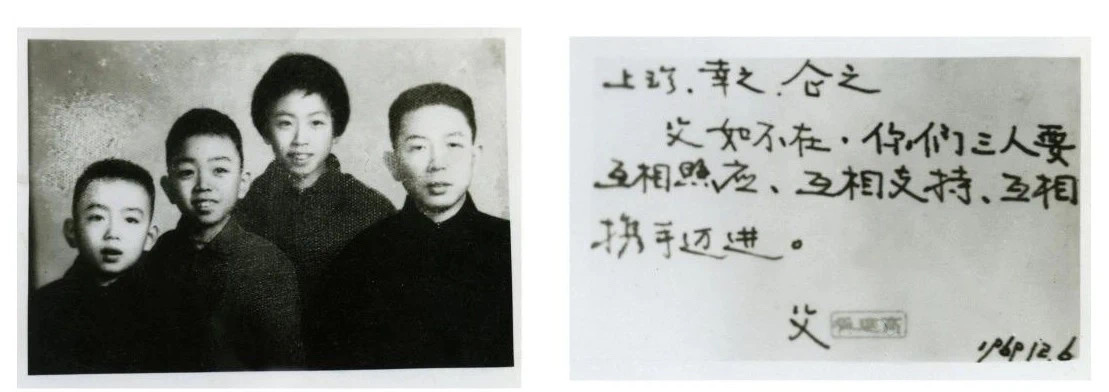 上珍、幸之、之
父如不在,你们三人要
互相照应、互相支持、互相
携手迈进。
父
1969 12.6